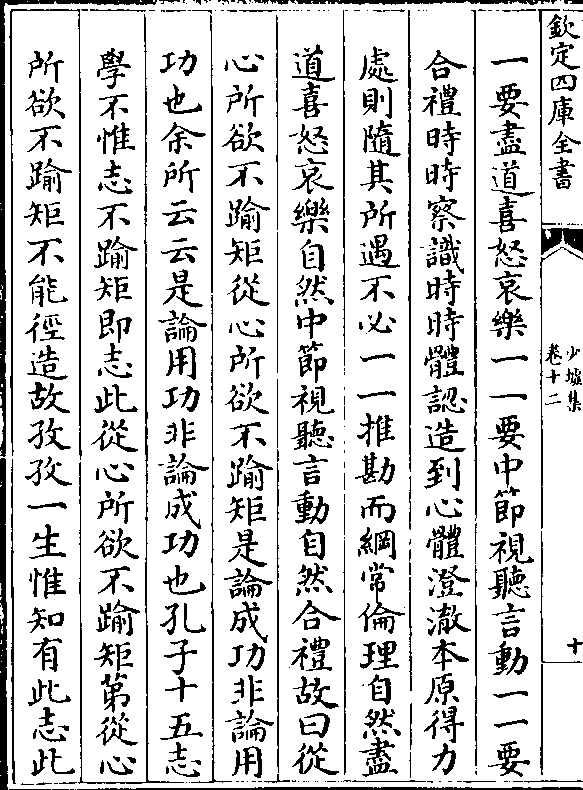 欽定四庫全書
少墟集
卷十二
十
一要盡道喜怒哀樂一一要中節視聽言動一一要
合禮時時察識時時體認造到心體澄澈本原得力
處則隨其所遇不必一一推勘而綱常倫理自然盡
道喜怒哀樂自然中節視聽言動自然合禮故曰從
心所欲不踰矩從心所欲不踰矩是論成功非論用
功也余所云云是論用功非論成功也孔子十五志
學不惟志不踰矩即志此從心所欲不踰矩第從心
所欲不踰矩不能徑造故孜孜一生惟知有此志此